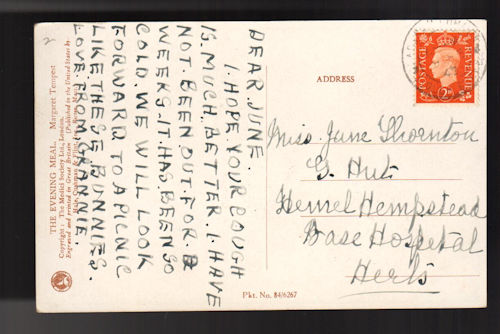 THE EVENING MEAL. Margaret Tempest
Copyright: The Medici Society Ltd., London.
Engraved and printed in Great Britain
Published in the United States by
Hale, Cushman & Flint, Inc., Boston, Mass.
2
DEAR JUNE.
I. HOPE YOUR COUGH
IS. MUCH. BETTER. I. HAVE
NOT. BEEN OUT. FOR. 2
WEEKS. IT. HAS. BEEN SO
COLD. WE WILL LOOK
FORWARD TO A PICNIC
LIKE THESE BUNNIES.
LOVE FROM GRANNIE
ADDRESS
POSTAGE
REVENUE
2D
Miss June Thornton
G. Hut
Hemel Hempstead
Base Hospital
Herts
Pkt. No. 84/6267